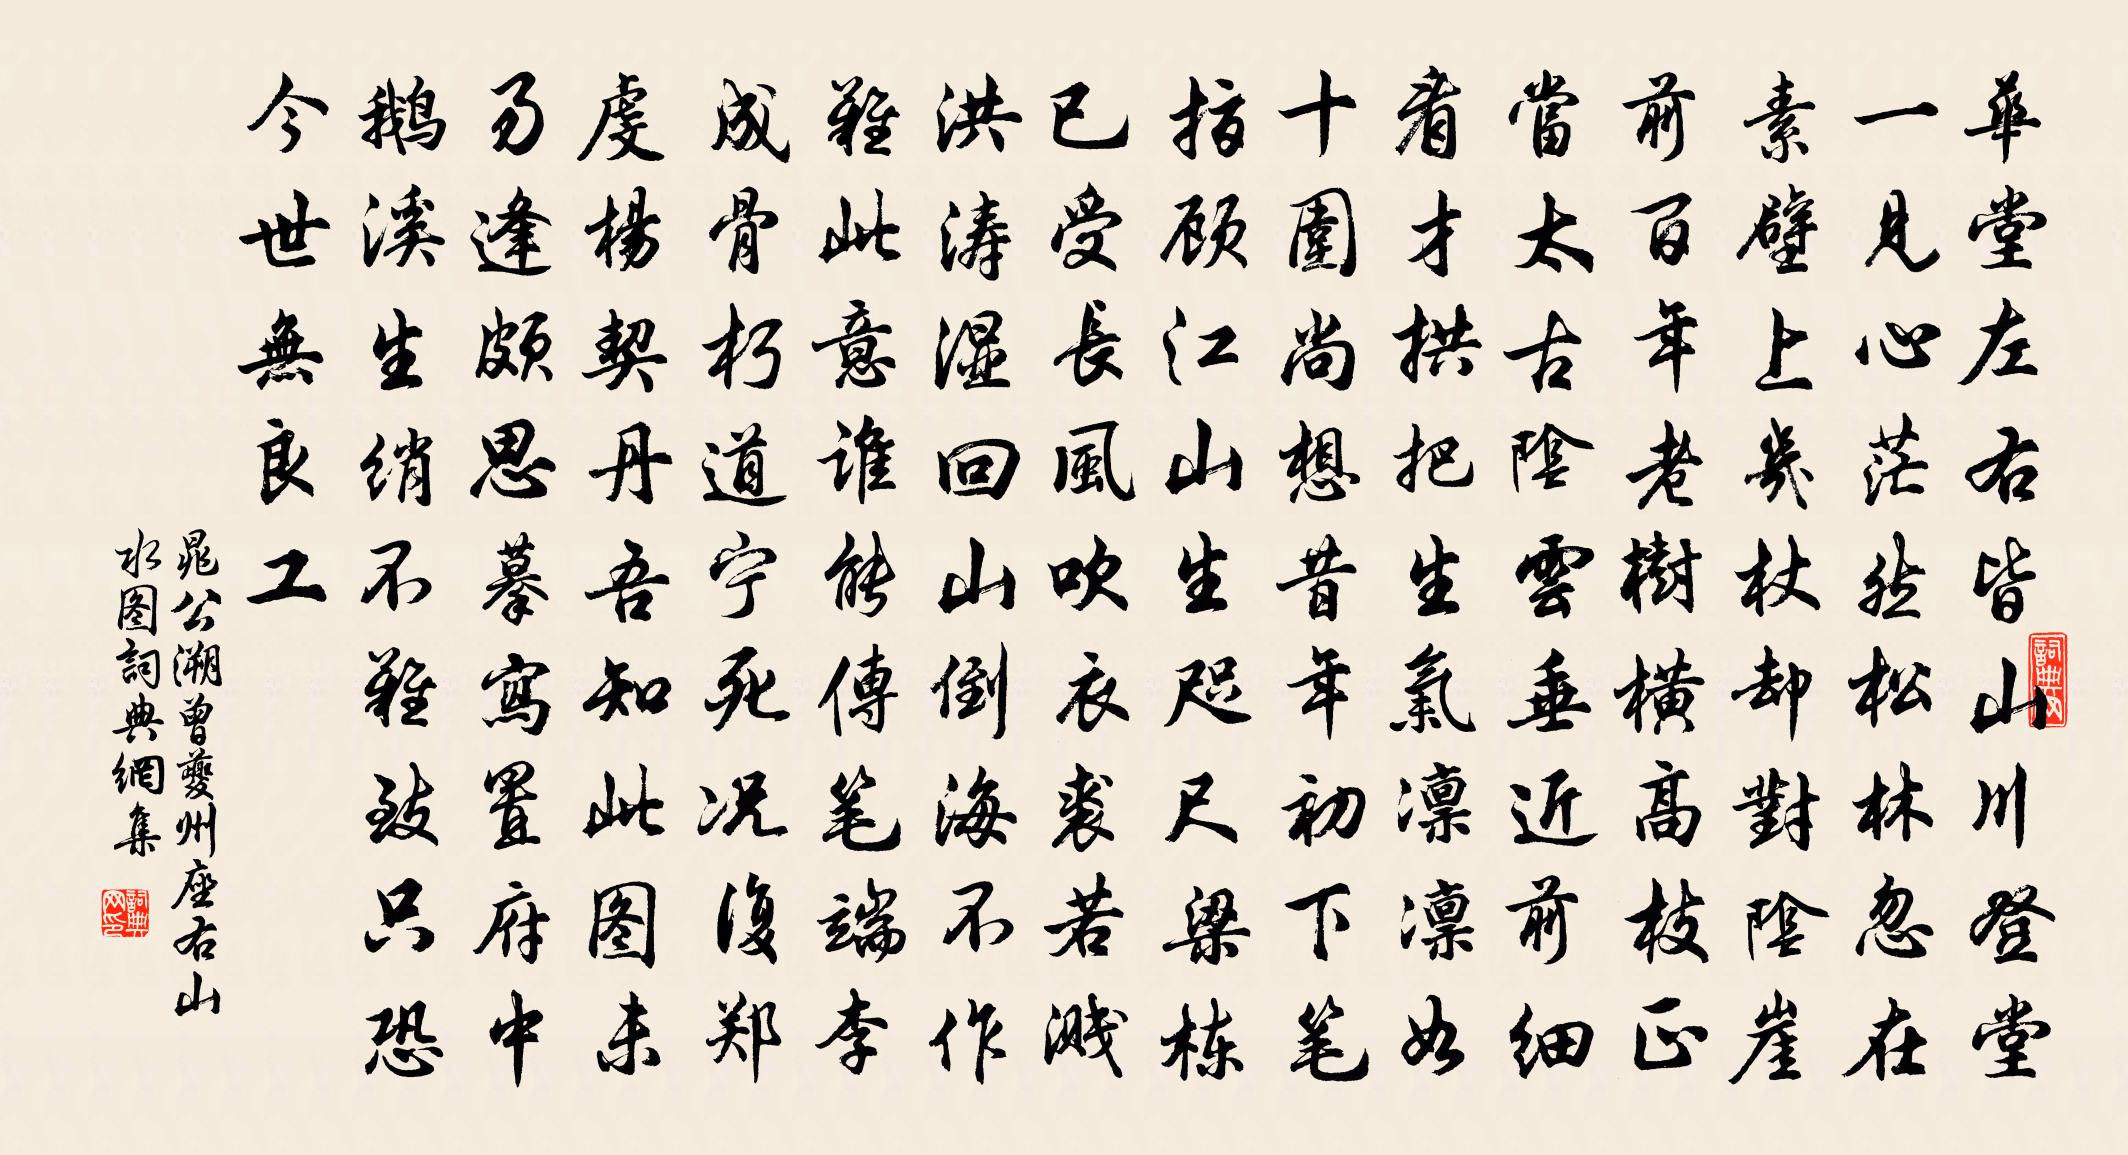 華堂左右皆山川登堂
一見心茫然松林忽在
素壁上幾杖却對陰崖
前百年老樹橫高枝正
當太古陰雲垂近前細
看才拱把生氣凛凛如
十圍尚想昔年初下笔
指顾江山生咫尺梁栋
已受長風吹衣裘若溅
洪涛濕回山倒海不作
難此意谁能傳笔端李
成骨朽道宁死况復郑
虔楊契丹吾知此图未
易逢頗思摹寫置府中
鹅溪生绡不難致只恐
今世無良工
晁公溯曾夔州座右山
水图詞典網集
詞典网
詞典网印